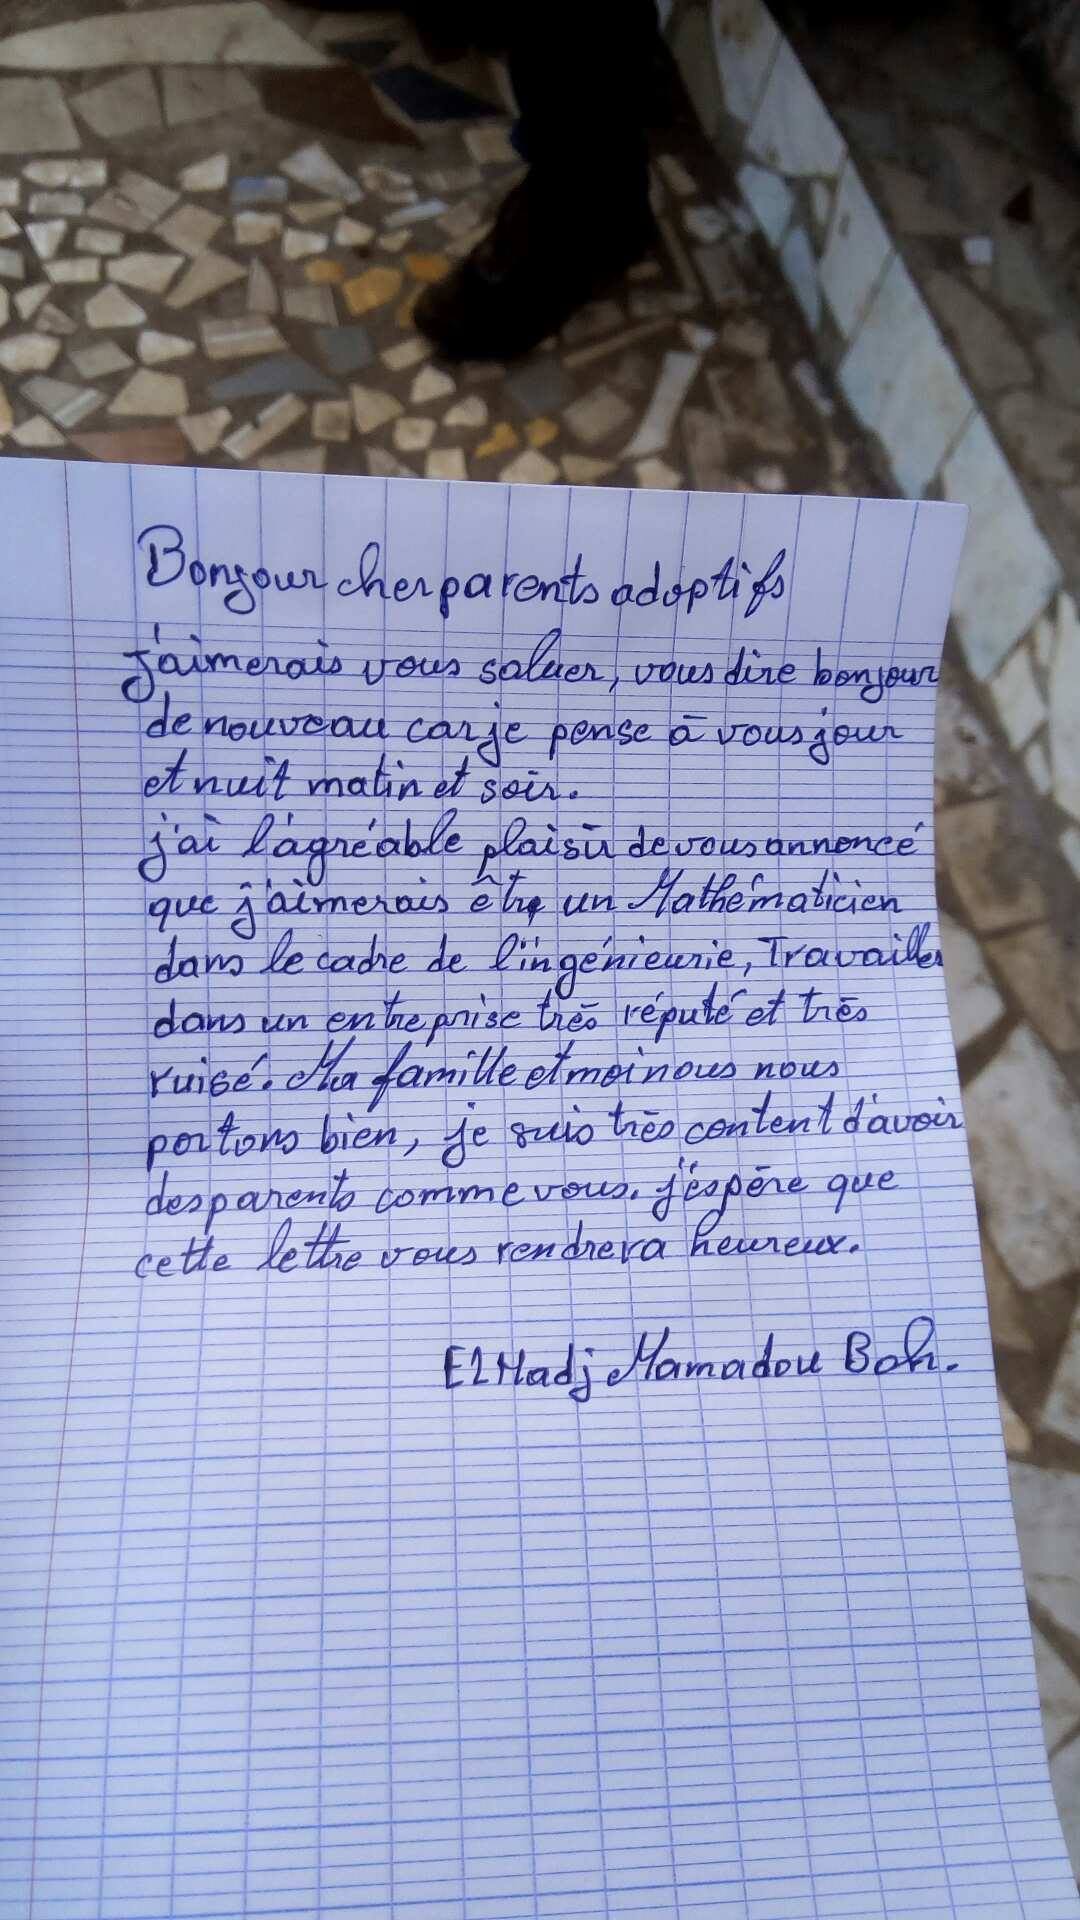 Bonjour cher parents adoptifs
j'aimerais vous saluer, vous dire bonjour
de nouveau car je pense à vous jour
et nuit matin et soir.
j'ai l'agréable plaisir de vous annoncé
que j'aimerais être un Mathématicien
dans le cadre de l'ingénieurie, Travailler
dans un entreprise très réputé et très
ruisé. Ma famille et moi nous nous
portons bien, je suis très content d'avoir
des parents comme vous. j'espère que
cette lettre vous rendrera heureux.
El Hadj Mamadou Bah.